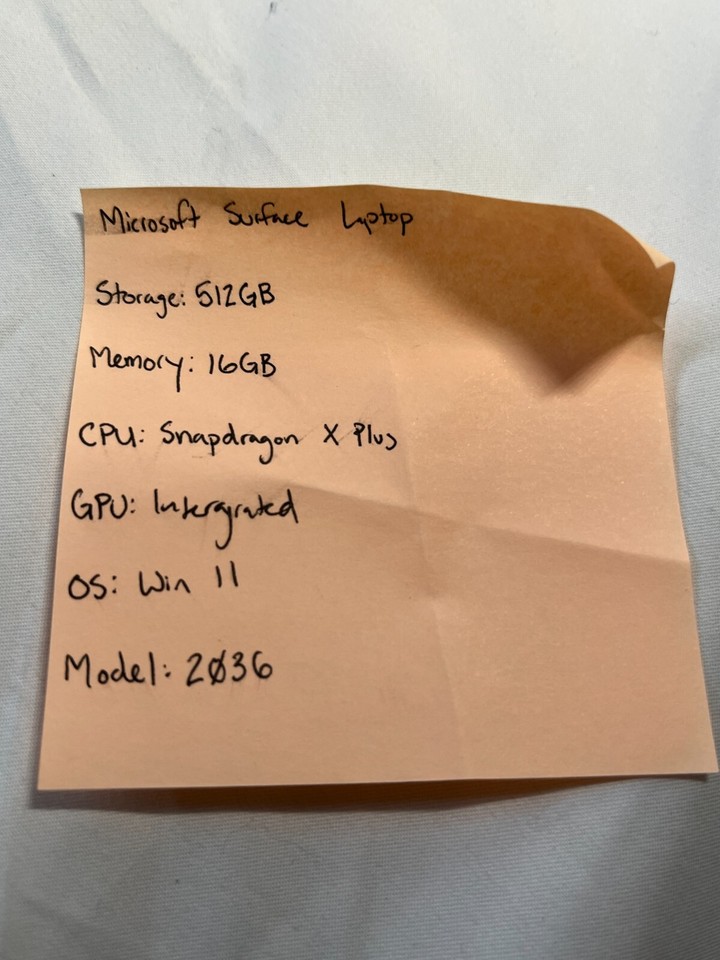 Microsoft Surface Laptop
Storage: 512GB
Memory: 16GB
CPU: Snapdragon X Plus
GPU: Intergrated
OS: Win 11
Model: 2036